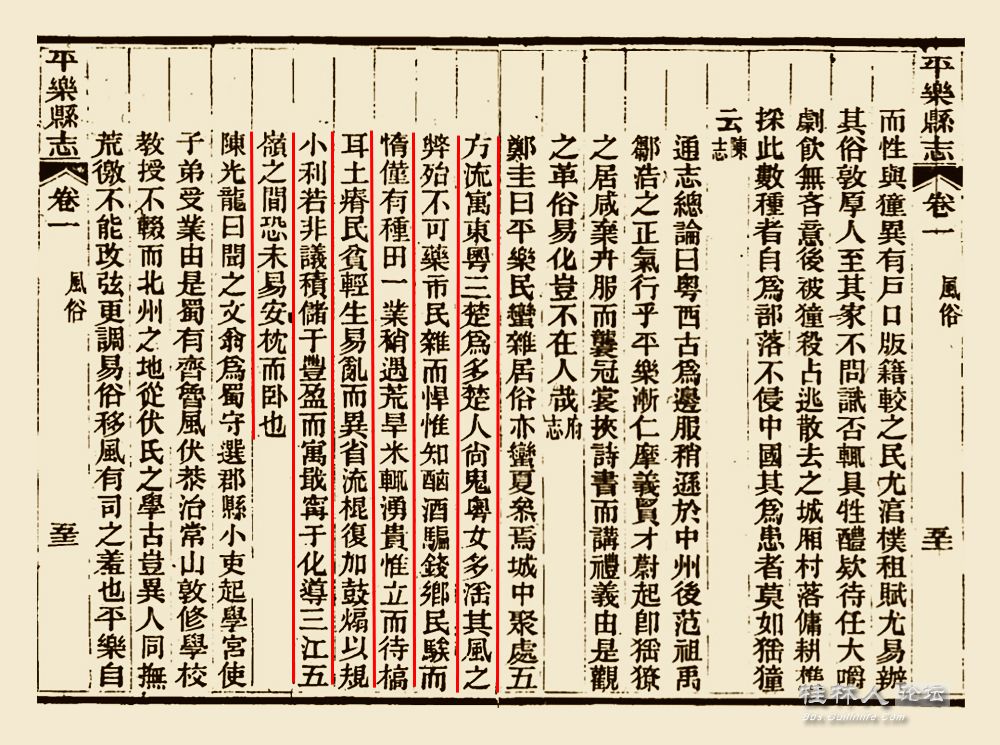 平樂縣志 卷一 風俗 五十三
而性與獞異有戶口版籍較之民尤湻樸租賦尤易辦
其俗敦厚人至其家不問識否輒具牲醴欵待任大嚼
劇飲無吝意後被獞殺占逃散去之城厢村落傭耕樵
採此數種者自為部落不侵中國其為患者莫如猺獞
云陳志
通志總論曰粵西古為邊服稍遜於中州後范祖禹
鄒浩之正氣行乎平樂漸仁摩義賢才蔚起卽猺獠
之居咸棄卉服而襲冠裳挾詩書而講禮義由是觀
之革俗易化豈不在人哉府志
鄭圭曰平樂民蠻雜居俗亦蠻夏叅焉城中聚處五
方流寓東粵三楚為多楚人尙鬼粵女多淫其風之
弊殆不可藥市民雜而悍惟知酗酒騙錢鄉民騃而
惰僅有種田一業稍遇荒旱米輒湧貴惟立而待槁
耳土瘠民貧輕生易亂而異省流棍復加鼓煽以規
小利若非議積儲于豐盈而寓戢寗于化導三江五
嶺之間恐未易安枕而卧也
陳光龍曰聞之文翁為蜀守選郡縣小吏起學宮使
子弟受業由是蜀有齊魯風伏恭治常山敦修學校
教授不輟而北州之地從伏氏之學古豈異人同撫
荒徼不能改弦更調易俗移風有司之羞也平樂自
平樂縣志 卷一 風俗 五十三
桂林人论坛
bbs.Guilinlife.Com